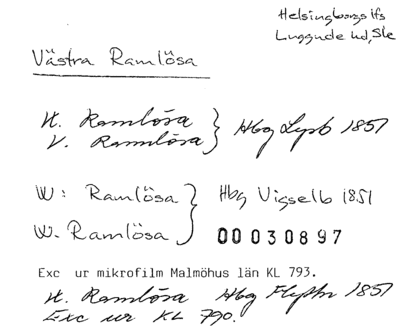 Helsingborgs lfs
Luggude hd, Skå
Västra Ramlösa
V. Ramlösa } Hbg Lysb 1851
V. Ramlösa
W: Ramlösa } Hbg Vigselb 1851
W. Ramlösa
00030897
Exc ur mikrofilm Malmöhus län KL 793.
V. Ramlösa Hbg Flyttn 1851
Exc ur KL 790.